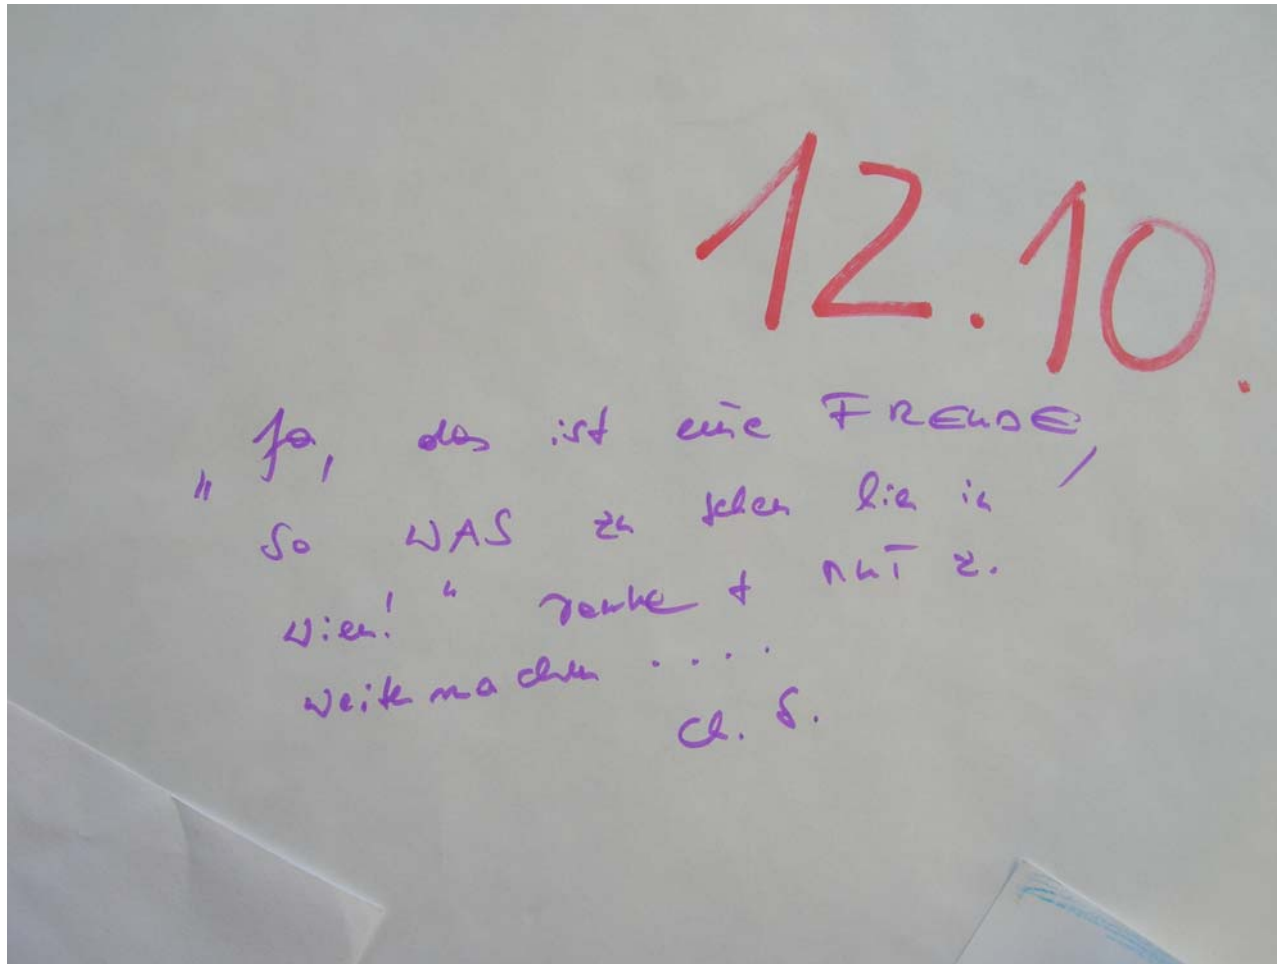 12.10.
„Ja, das ist eine FREUDE,
so WAS zu sehen hier in
Wien!“ Danke + MUT z.
weitermachen ....
Ch. S.